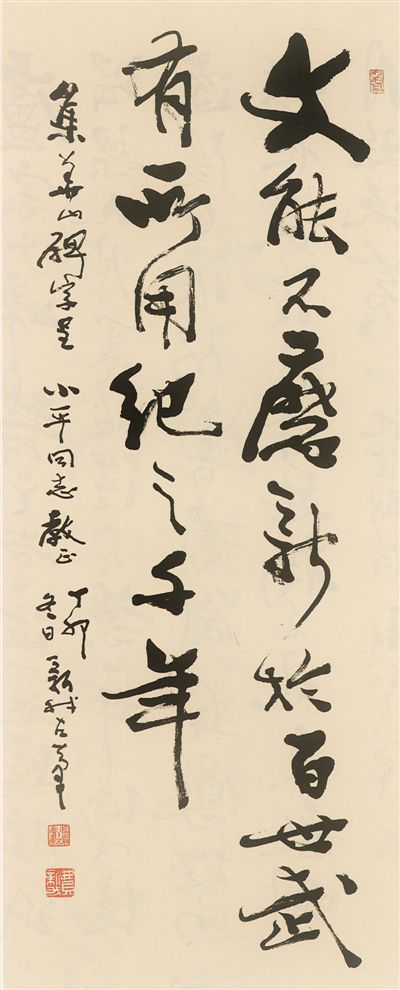 文能不磨新於百世武
有所用紀之千年
集華山碑字呈 小平同志教正 丁卯冬日 新我左筆